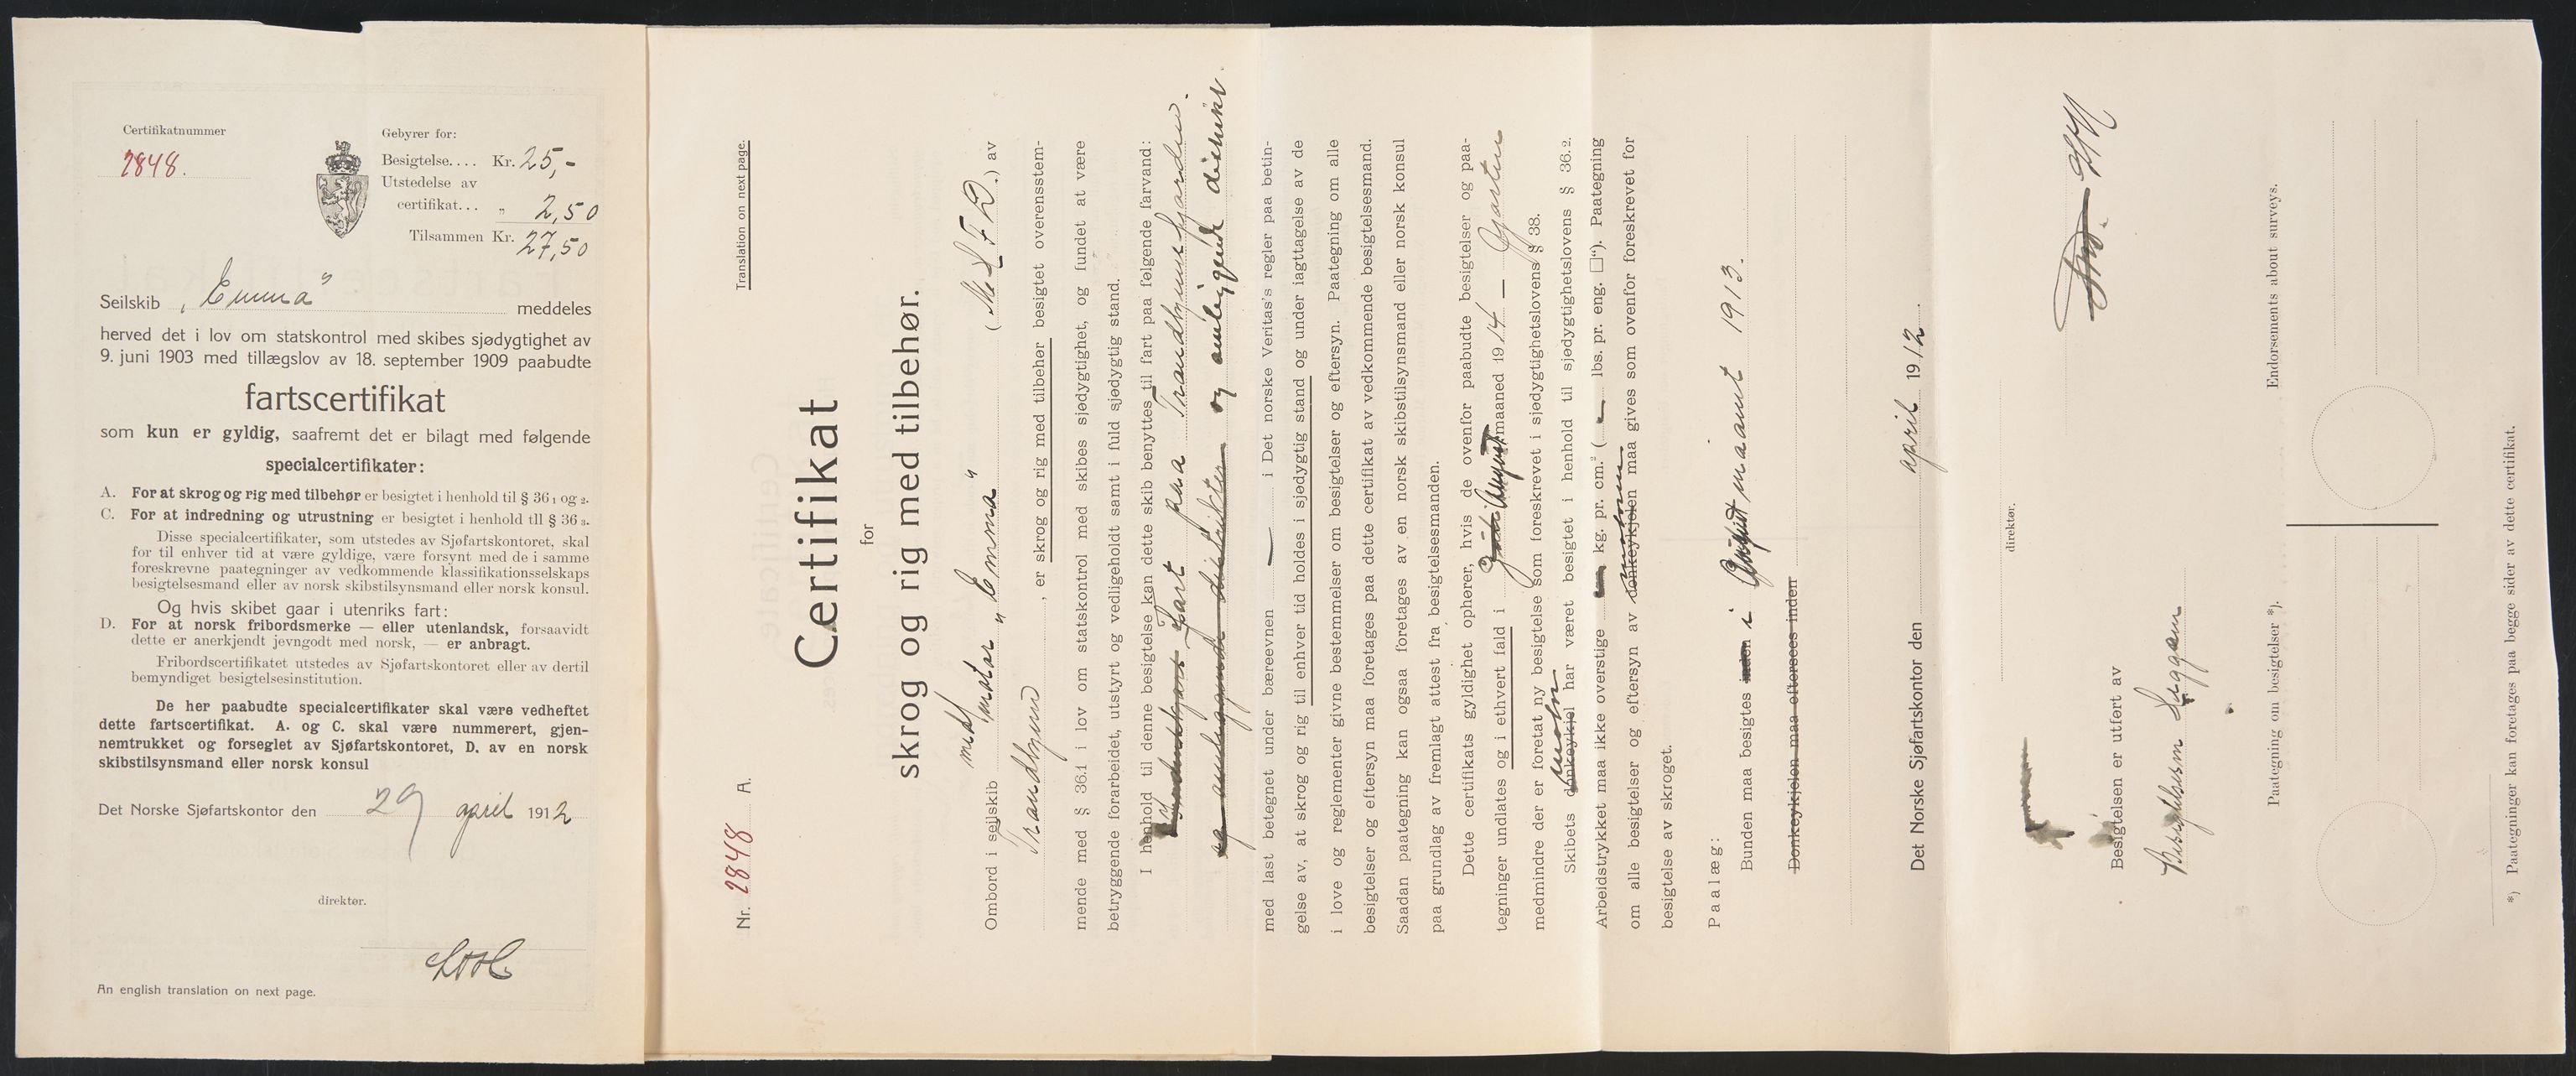 Certifikatnummer
2848.
Gebyrer for:
Besigtelse.... Kr. 25,-
Utstedelse av
certifikat... „ 2,50
Tilsammen Kr. 27,50
Seilskib „Emma" meddeles
herved det i lov om statskontrol med skibes sjødygtighet av
9. juni 1903 med tillægslov av 18. september 1909 paabudte
fartscertifikat
som kun er gyldig, saafremt det er bilagt med følgende
specialcertifikater:
A. For at skrog og rig med tilbehør er besigtet i henhold til § 36 1 og 2.
C. For at indredning og utrustning er besigtet i henhold tll § 36 3.
Disse specialcertifikater, som utstedes av Sjøfartskontoret, skal
for til enhver tid at være gyldige, være forsynt med de i samme
foreskrevne paategninger av vedkommende klassifikationsselskaps
besigtelsesmand eller av norsk skibstilsynsmand eller norsk konsul.
Og hvis skibet gaar i utenriks fart:
D. For at norsk fribordsmerke — eller utenlandsk, forsaavidt
dette er anerkjendt jevngodt med norsk, — er anbragt.
Fribordscertifikatet utstedes av Sjøfartskontoret eller av dertil
bemyndiget besigtelsesinstitution.
De her paabudte specialcertifikater skal være vedheftet
dette fartscertifikat. A. og C. skal være nummerert, gjen-
nemtrukket og forseglet av Sjøfartskontoret, D. av en norsk
skibstilsynsmand eller norsk konsul
Det Norske Sjøfartskontor den 29 april 1912
direktør.
An english translation on next page.
Nr. 2848 A.
Translation on next page.
Certifikat
for
skrog og rig med tilbehør.
Ombord i seilskib med motor „Emma" (M L F D.) av
Trondhjem, er skrog og rig med tilbehør besigtet overensstem-
mende med § 36.1 i lov om statskontrol med skibes sjødygtighet, og fundet at være
betryggende forarbeidet, utstyrt og vedligeholdt samt i fuld sjødygtig stand.
I henhold til denne besigtelse kan dette skib benyttes til fart paa følgende farvand:
Fart paa Trondhjemsfjorden
og omliggende distrikter og omliggende distrikt.
med last betegnet under bæreevnen — i Det norske Veritas's regler paa betin-
gelse av, at skrog og rig til enhver tid holdes i sjødygtig stand og under iagttagelse av de
i love og reglementer givne bestemmelser om besigtelser og eftersyn. Paategning om alle
besigtelser og eftersyn maa foretages paa dette certifikat av vedkommende besigtelsesmand.
Saadan paategning kan ogsaa foretages av en norsk skibstilsynsmand eller norsk konsul
paa grundlag av fremlagt attest fra besigtelsesmanden.
Dette certifikats gyldighet ophører, hvis de ovenfor paabudte besigtelser og paa-
tegninger undlates og i ethvert fald i August maaned 1914 —
medmindre der er foretat ny besigtelse som foreskrevet i sjødygtighetslovens § 38.
Skibets donkeykjel motor har været besigtet i henhold til sjødygtighetslovens § 36.2.
Arbeidstrykket maa ikke overstige — kg. pr. cm.² ( — lbs. pr. eng. □"). Paategning
om alle besigtelser og eftersyn av donkeykjelen motoren maa gives som ovenfor foreskrevet for
besigtelse av skroget.
Paalæg:
Bunden maa besigtes inden i August maaned 1913.
Donkeykjelen maa eftersees inden
Det Norske Sjøfartskontor den april 1912.
direktør.
Besigtelsen er utført av
Paategning om besigtelser *).
Endorsements about surveys.
*) Paategninger kan foretages paa begge sider av dette certifikat.